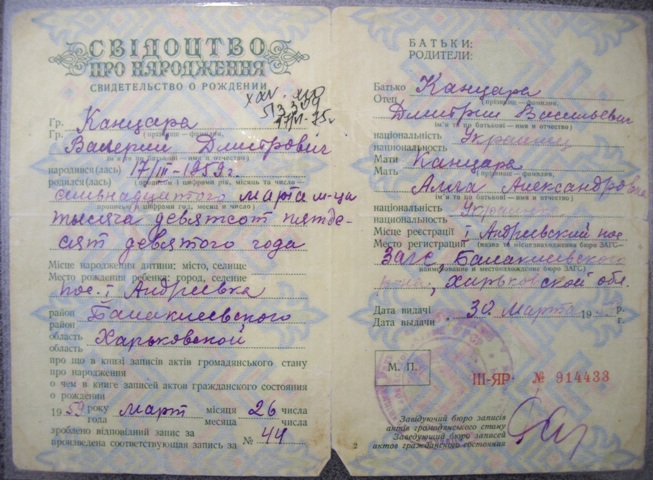 СВІДОЦТВО
ПРО НАРОДЖЕННЯ
СВИДЕТЕЛЬСТВО О РОЖДЕНИИ
Гр. Канцара
Гр. (прізвище — фамилия,
Валерий Дмитрович
ім'я та по батькові — имя и отчество)
народився(лась) 17/III-1959г.
родился(лась) (прописом і цифрами рік, місяць та число —
семьнадцатого марта м-ца
прописью и цифрами год, месяц и число)
тысяча девятсот пятде-
сят девятого года
Місце народження дитини: місто, селище
Место рождения ребенка: город, селение
пос. I Андреевка
район Балаклиевского
район
область Харьковской
область
про що в книзі записів актів громадянського стану
про народження
о чем в книге записей актов гражданского состояния
о рождении
1959 року март місяця 26 числа
года месяца числа
зроблено відповідний запис за № 44
произведена соответствующая запись за
БАТЬКИ:
РОДИТЕЛИ:
Батько Канцара
Отец (прізвище — фамилия,
Дмитрий Васильевич
ім'я та по батькові — имя и отчество)
національність Украинец
национальность
Мати Канцара
Мать (прізвище — фамилия,
Алла Александровна
ім'я та по батькові — имя и отчество)
національність Украинка
национальность
Місце реєстрації I Андреевский пос
Место регистрации (назва та місцезнаходження бюро ЗАГС—
ЗАГС, Балаклиевского
наименование и местонахождение бюро ЗАГС)
р-на, Харьковской обл.
Дата видачі 30 Марта 19 р.
Дата выдачи г.
М. П.
III-ЯР № 914433
Завідуючий бюро записів
актів громадянського стану
Заведующий бюро записей
актов гражданского состояния
2